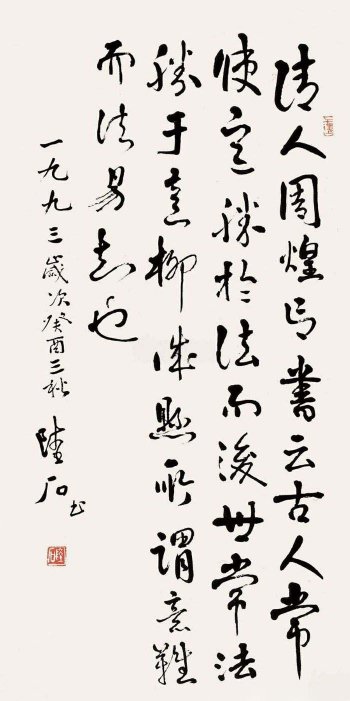 清人周煌書云古人常
使意勝於法而後世常法
勝于意柳誠懸所謂意難
而法易知也
一九九三歲次癸酉三秋 陸石书